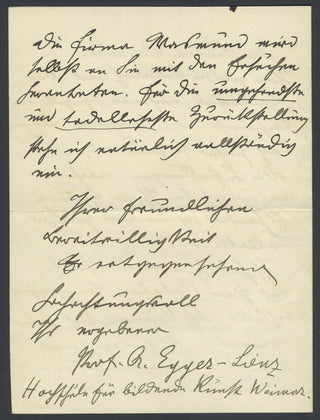 Die Firma Wasmund wird
selbst an Sie mit dem Ersuchen
herantreten. Für die umgehendste
und tadelloseste Zurückstellung
stehe ich natürlich vollständig
ein.
Ihrer freundlichen
Bereitwilligkeit
entgegensehend
Hochachtungsvoll
Ihr ergebener
Prof. A. Egger-Lienz
Hochschule für bildende Kunst Weimar.